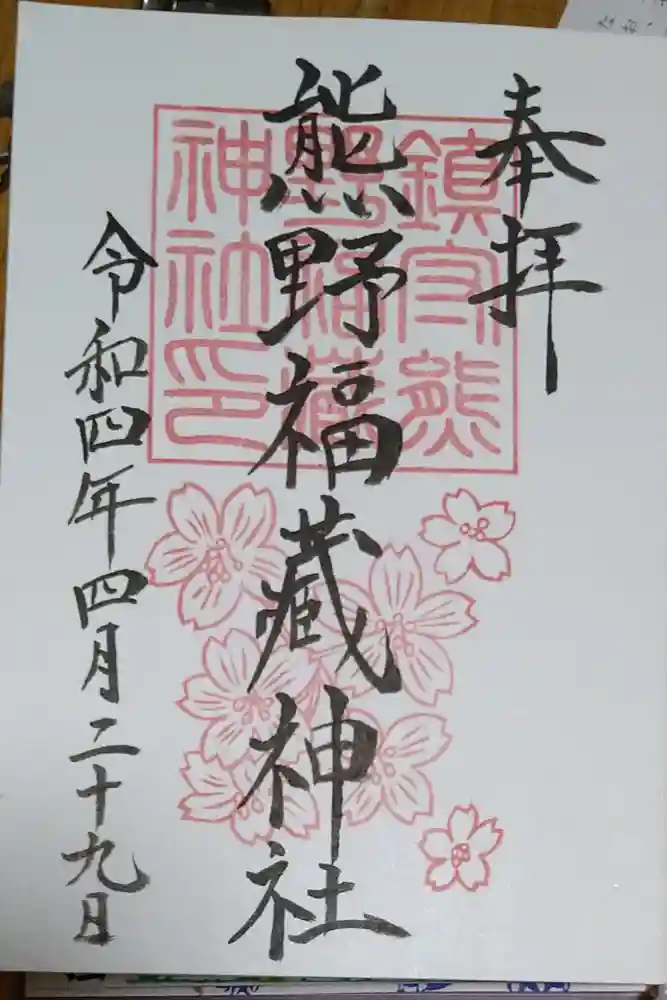 奉拝
熊野福藏神社
令和四年四月二十九日
鎮守熊
野福藏
神社印